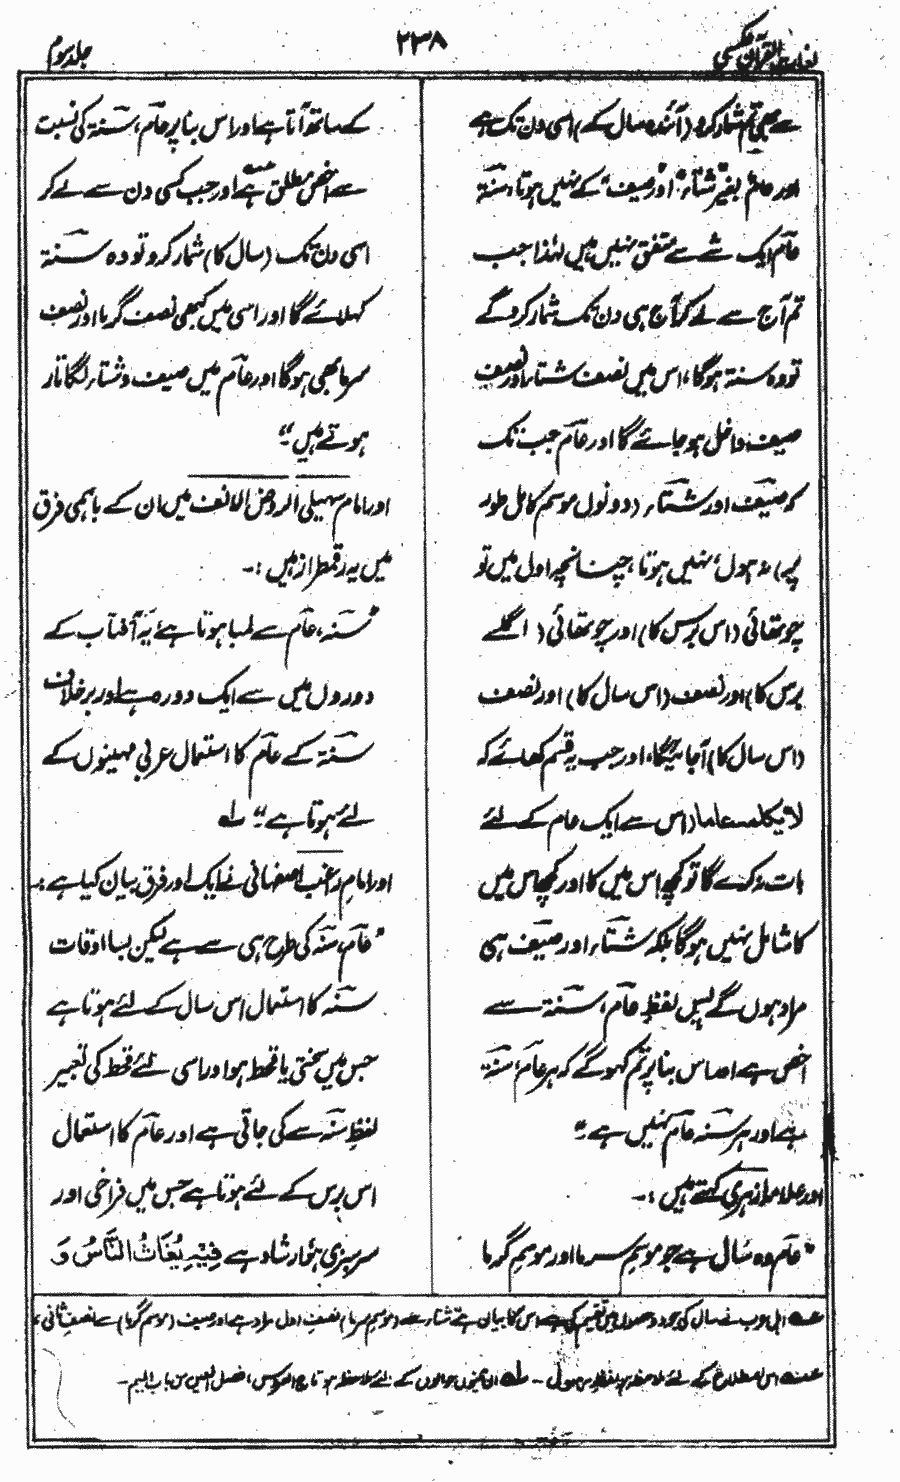 لغات القرآن عکسی
۲۳۸
جلد سوم
سے بھی تم شمار کرو (آئندہ سال کے) اسی دن تک ہے
اور عامٌ بغیر شتاءٌ اور صیفٌ کے نہیں ہوتا، سَنۃ
عام ایک شے سے متفق نہیں ہیں لہٰذا جب
تم آج سے لے کر آج ہی دن تک شمار کرو گے
تو وہ سنۃ ہوگا، اس میں نصف شتاء اور نصف
صیف داخل ہو جائے گا اور عام جب تک
کہ صیف اور شتاء (دونوں موسم کامل طور
پر) نہ ہوں، نہیں ہوتا، چنانچہ اول میں تو
چوتھائی (اس برس کا) اور چوتھائی ( اگلے
برس کا) اور نصف (اس سال کا) اور نصف
(اس سال کا) آجائیگا، اور جب یہ قسم کھائے کہ
لا یکلمہ عاما (اس سے ایک عام کے لئے
بات نہ کرے گا تو کچھ اس میں کا اور کچھ اس میں
کا شامل نہیں ہوگا بلکہ شتاء اور صیف ہی
مراد ہوں گے پس لفظِ عام، سَنۃ سے
اخص ہے اور اس بنا پر تم کہو گے کہ ہر عام، سَنۃ
ہے اور ہر سَنۃ عام نہیں ہے"
اور علامہ ازہری کہتے ہیں :۔
"عام وہ سال ہے جو موسمِ سرما اور موسمِ گرما
کے ساتھ آتا ہے اور اس بنا پر عام، سَنۃ کی نسبت
سے اخص مطلق ہے اور جب کسی دن سے لے کر
اسی دن تک (سال کا) شمار کرو تو وہ سَنۃ
کہلائے گا اور اسی میں کبھی نصف گرما اور نصف
سرما بھی ہوگا اور عام میں صیف و شتاء لگاتار
ہوتے ہیں"
اور امام سہیلی الروض الانف میں ان کے باہمی فرق
میں یہ رقمطراز ہیں :۔
"سَنہ، عام سے لمبا ہوتا ہے، یہ آفتاب کے
دوروں میں سے ایک دورہ ہے اور برخلاف
سَنۃ کے عام کا استعمال عربی مہینوں کے
لئے ہوتا ہے" لہ
اور امام راغب اصفہانی نے ایک اور فرق بیان کیا ہے :۔
"عام، سَنہ کی طرح ہی سے ہے لیکن بسا اوقات
سَنہ کا استعمال اس سال کے لئے ہوتا ہے
جس میں سختی یا قحط ہو اور اسی لئے قحط کی تعبیر
لفظ سَنہ سے کی جاتی ہے اور عام کا استعمال
اس برس کے لئے ہوتا ہے جس میں فراخی اور
سرسبزی ہو، ارشاد ہے فِیْہِ یُغَاثُ النَّاسُ وَ
عہ اہل عرب نے سال کی جو دو حصوں میں تقسیم کی ہے اس کا بیان ہے شتاء سے (موسمِ سرما) نصفِ اول مراد ہے اور صیف (موسمِ گرما) سے نصفِ ثانی،
عہ اس اصطلاح کے لئے ملاحظہ ہو لفظ حول ۔ لہ ان تینوں حوالوں کے لئے ملاحظہ ہو تاج العروس، فصل العین من باب المیم ۔